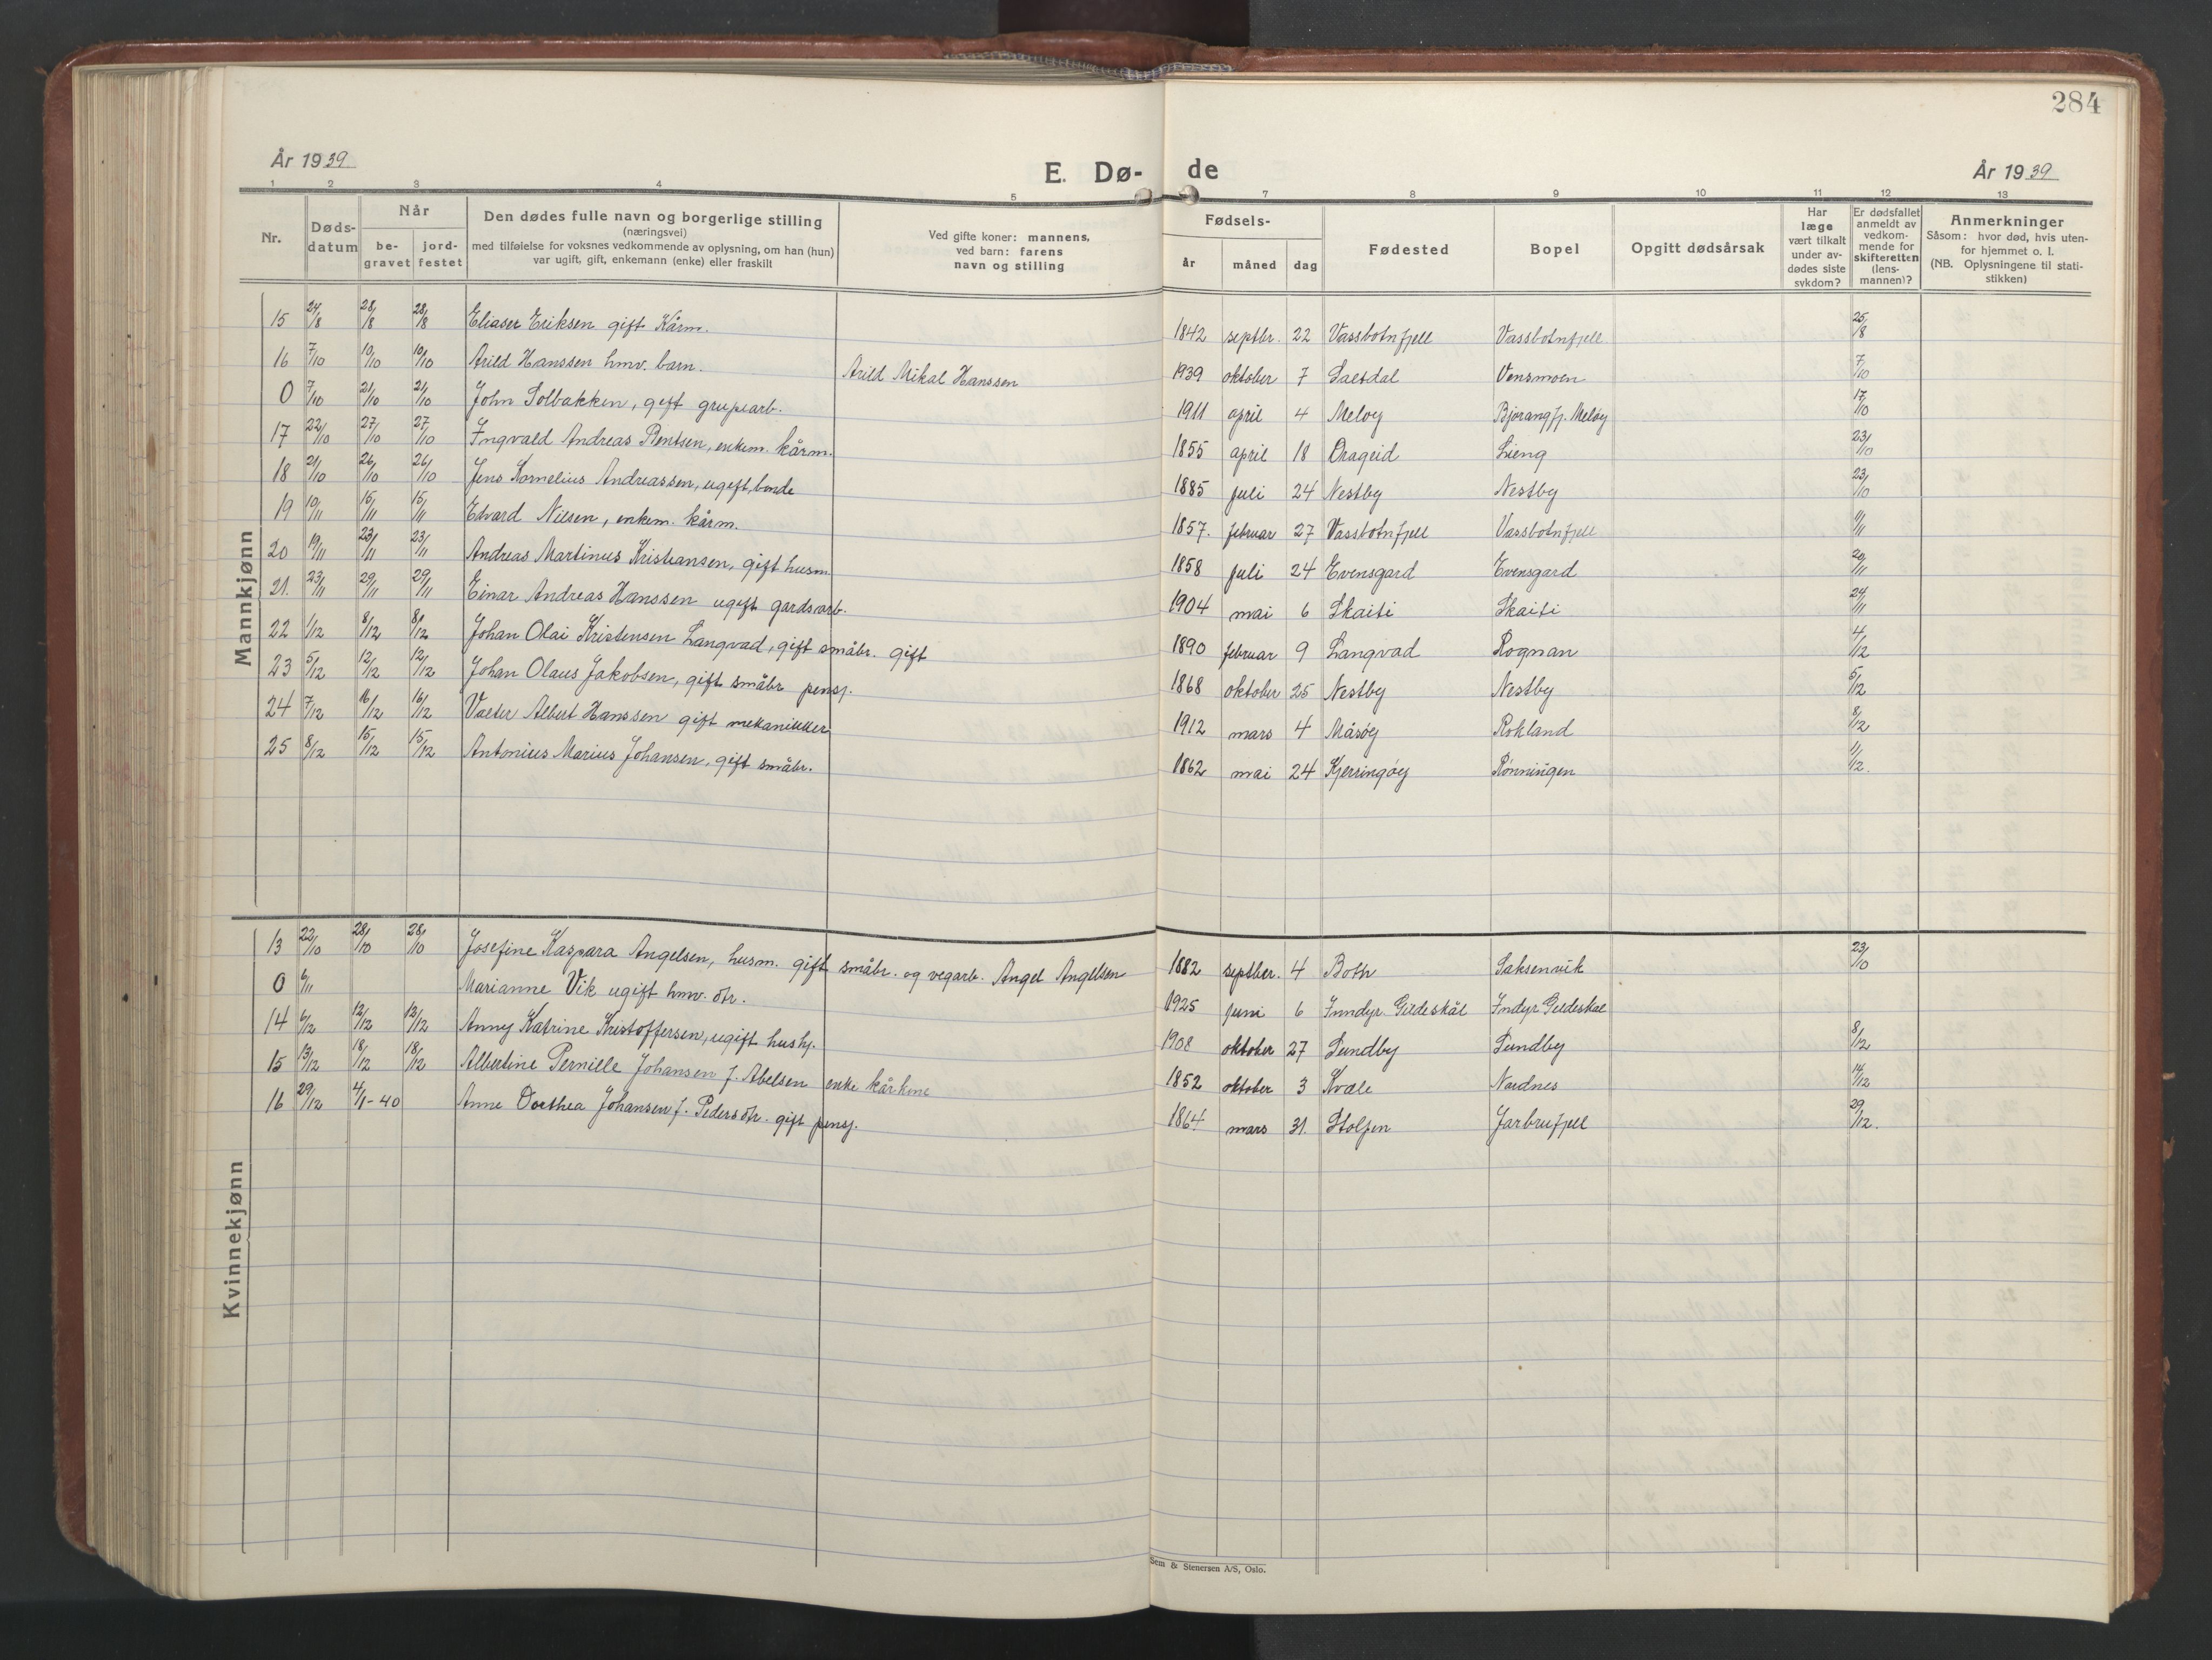 284
År 1939
E. Dø- de
År 1939
1 2 3 4 5 7 8 9 10 11 12 13
Nr.
Døds-
datum
Når
be-
gravet
jord-
festet
Den dødes fulle navn og borgerlige stilling
(næringsvei)
med tilføielse for voksnes vedkommende av oplysning, om han (hun)
var ugift, gift, enkemann (enke) eller fraskilt
Ved gifte koner: mannens,
ved barn: farens
navn og stilling
Fødsels-
år måned dag
Fødested
Bopel
Opgitt dødsårsak
Har
læge
vært tilkalt
under av-
dødes siste
sykdom?
Er dødsfallet
anmeldt av
vedkom-
mende for
skifteretten
(lens-
mannen)?
Anmerkninger
Såsom: hvor død, hvis uten-
for hjemmet o. l.
(NB. Oplysningene til stati-
stikken)
Mannkjønn
15 24/8 28/8 28/8 Eliaser Eriksen gift Kårm. 1842 septbr. 22 Vassbotnfjell Vassbotnfjell 25/8
16 7/10 10/10 10/10 Arild Hanssen hmv. barn. Arild Mikal Hanssen 1939 oktober 7 Saltdal Vensmoen 7/10
0 7/10 21/10 21/10 John Solbakken, gift grupearb. 1911 april 4 Meløy Bjerangfj. Meløy 17/10
17 22/10 27/10 27/10 Ingvald Andreas Bentsen, enkem. kårm. 1855 april 18 Drageid Lieng 23/10
18 21/10 26/10 26/10 Jens Kornelius Andreassen, ugift, bonde 1885 juli 24 Nestby Nestby 23/10
19 10/11 15/11 15/11 Edvard Nilsen, enkem. kårm. 1857. februar 27 Vassbotnfjell Vassbotnfjell 11/11
20 19/11 23/11 23/11 Andreas Martinus Kristiansen, gift husm. 1858 juli 24 Evensgard Evensgard 20/11
21. 23/11 29/11 29/11 Einar Andreas Hanssen ugift gardsarb. 1904 mai 6 Skaiti Skaiti 24/11
22 1/12 8/12 8/12 Johan Olai Kristensen Langvad, gift småbr. gift 1890 februar 9 Langvad Rognan 4/12
23 5/12 12/12 12/12 Johan Olaus Jakobsen, gift småbr pensj. 1868 oktober 25 Nestby Nestby 5/12
24 7/12 16/12 16/12 Valter Albert Hanssen gift mekanikker 1912 mars 4 Måsøy Rokland 8/12
25 8/12 15/12 15/12 Antonius Marius Johansen, gift småbr. 1862 mai 24 Kjerringøy Rønningen 11/12.
Kvinnekjønn
13 22/10 28/10 28/10 Josefine Kaspara Angelsen, husm. gift småbr. og vegarb. Angel Angelsen 1882 septber. 4 Both Saksenvik 23/10
0 6/11 Marianne Vik ugift hmv. dtr. 1925 juni 6 Inndyr. Gildeskål Indyr Gildeskål
14 6/12 12/12 12/12 Anny Katrine Kristoffersen, ugift hushj. 1908 oktober 27 Sundby Sundby 8/12
15 13/12 18/12 18/12 Albertine Pernille Johansen f. Abelsen enke kårkone 1852 oktober 3 Kvæle Nordnes 14/12
16 29/12 4/1-40 Anne Dorthea Johansen f. Pedersdtr. gift pensj. 1864 mars 31. Stolpen Jarbrufjell 29/12.
Sem & Stenersen A/S, Oslo.